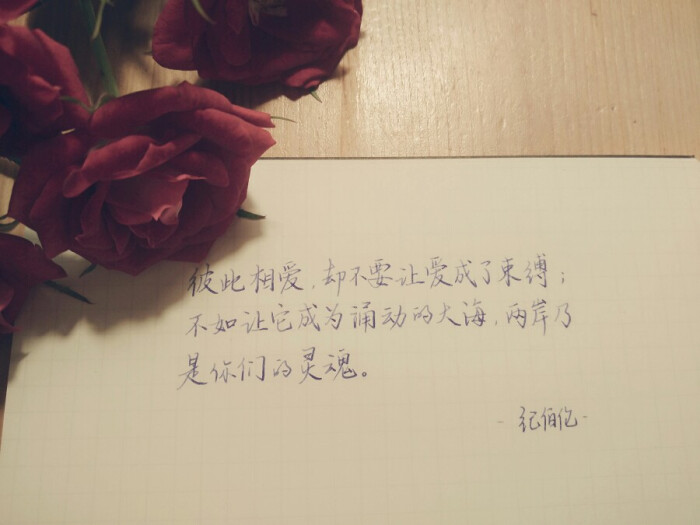 彼此相爱，却不要让爱成了束缚；
不如让它成为涌动的大海，两岸乃
是你们的灵魂。
-纪伯伦-